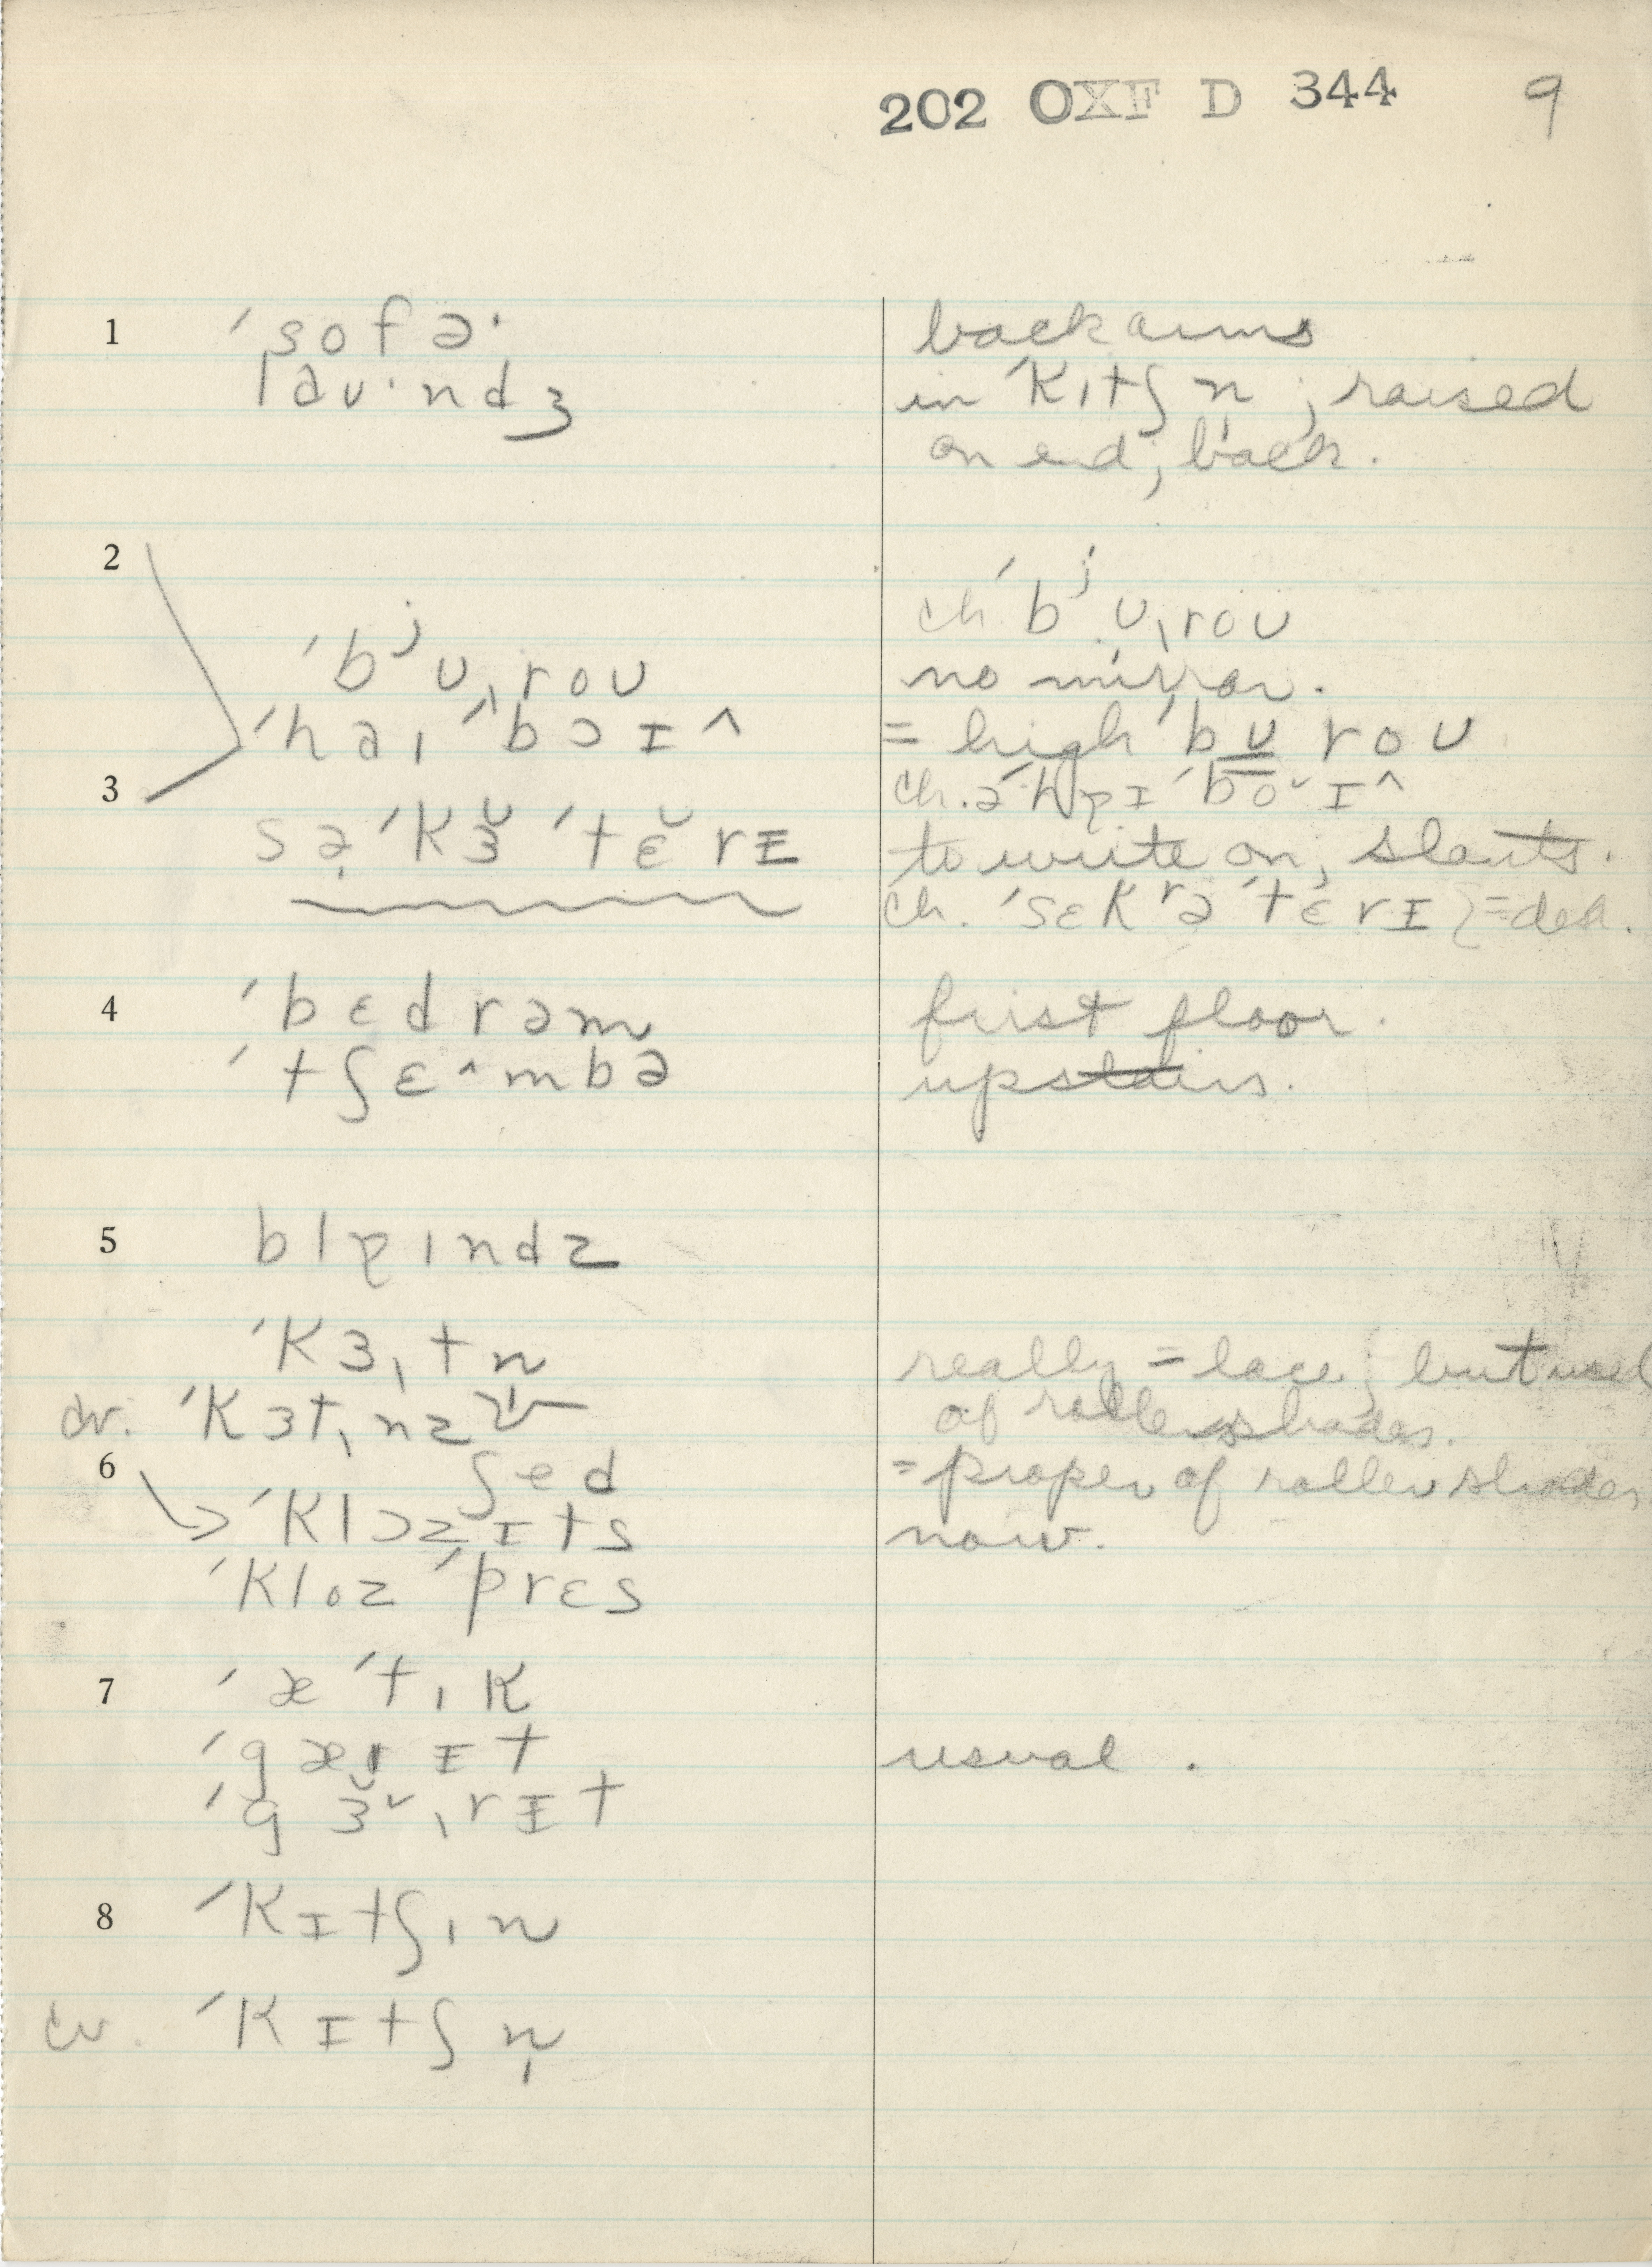 202 OXF D 344 9
1 ˈsofə· back arms
laʊ·ndʒ in ˈkɪtʃn̩; raised
on end; back.
2 ch ˈbʲʊˌroʊ
ˈbʲʊˌroʊ no mirror.
ˈhaɪ ˈbɔɪ^ = high ˈbʊroʊ
3 ch.
sə̣ˈkɜ̆ˈtɛ̆rɪ to write on; slants.
ch. ˈsɛkʳəˈtɛrɪ } = desk.
4 ˈbɛdrəm first floor.
ˈtʃɛ^mbə upstairs.
5 blɐɪndz
ˈkɜˌtn really = lace; but used
cv. ˈkɜtˌnz of roller shades.
6 ʃed = proper of roller shades
ˈklɔzɪts now.
ˈkloz ˈprɛs
7 ˈæˈtɪk
ˈgærɪt usual.
ˈgɜ̆ˌrɪt
8 ˈkɪtʃɪn
cv. ˈkɪtʃn̩